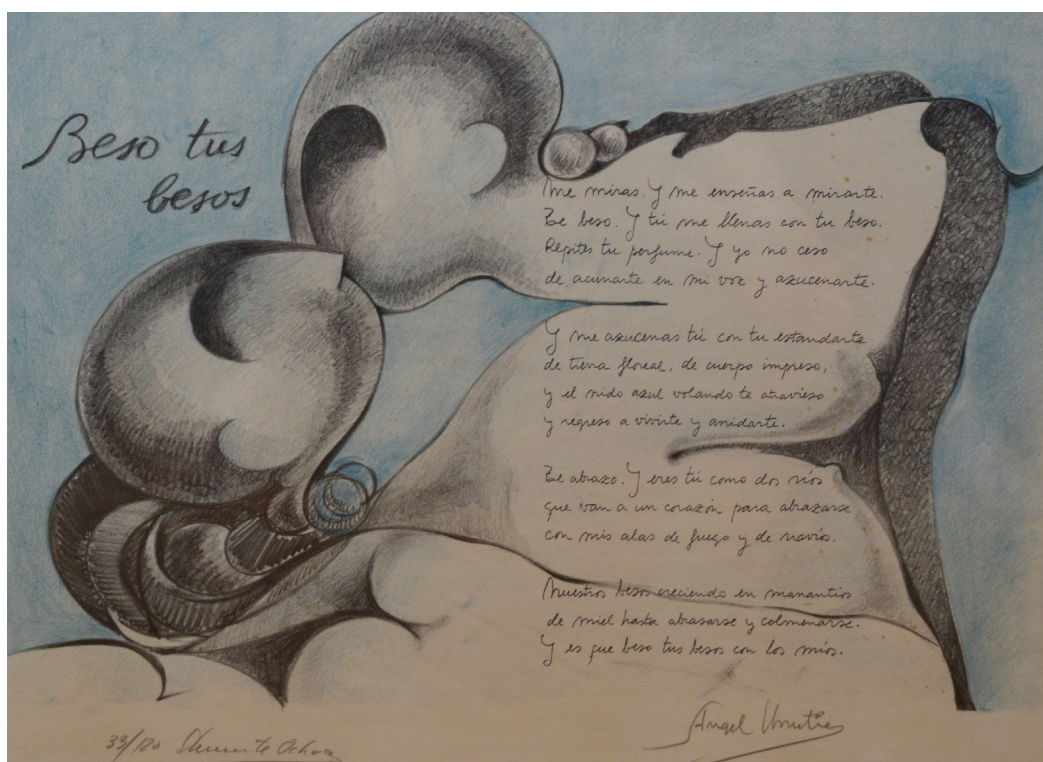 Beso tus
besos
Me miras. Y me enseñas a mirarte.
Te beso. Y tú me llenas con tu beso.
Repites tu perfume. Y yo no ceso
de acunarte en mi voz y azucenarte.
Y me azucenas tú con tu estandarte
de tierra floreal, de cuerpo impreso,
y el nido azul volando te atravieso
y regreso a vivirte y anidarte.
Te abrazo. Y eres tú como dos ríos
que van a un corazón para abrazarse
con mis alas de fuego y de navíos.
Nuestros besos creciendo en manantíos
de miel hasta abrasarse y colmenarse.
Y es que beso tus besos con los míos.
33/120 Ochoa
Ángel Urrutia